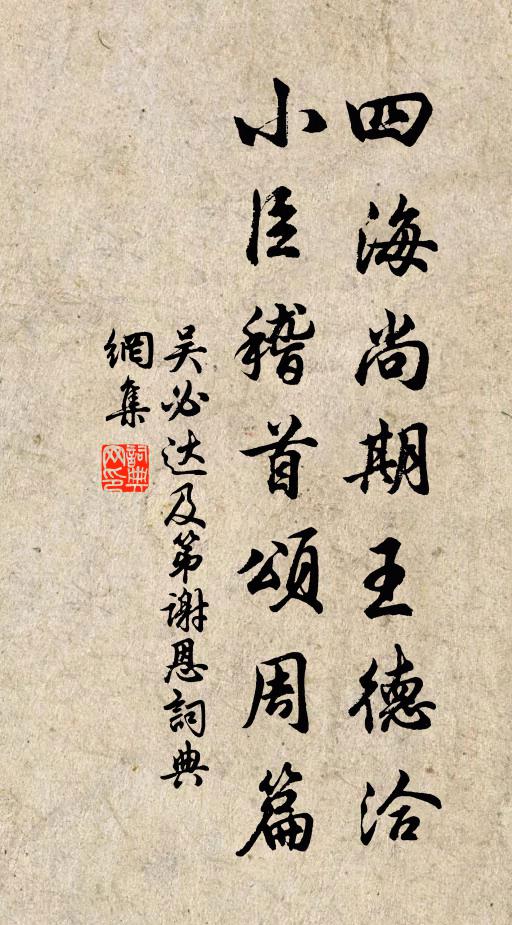 四海尚期王德洽
小臣稽首頌周篇
吴必达及第謝恩詞典
網集
詞典
网印